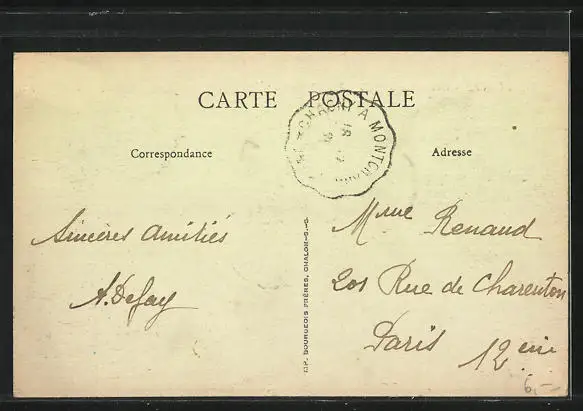 CARTE POSTALE
Correspondance
Adresse
À MONTCHANIN
18
Sincères amitiés
A. Defay
IMP. BOURGEOIS FRÈRES, CHALON-S.-S.
Mme Renaud
201 Rue de Charenton
Paris 12 eme
6,-